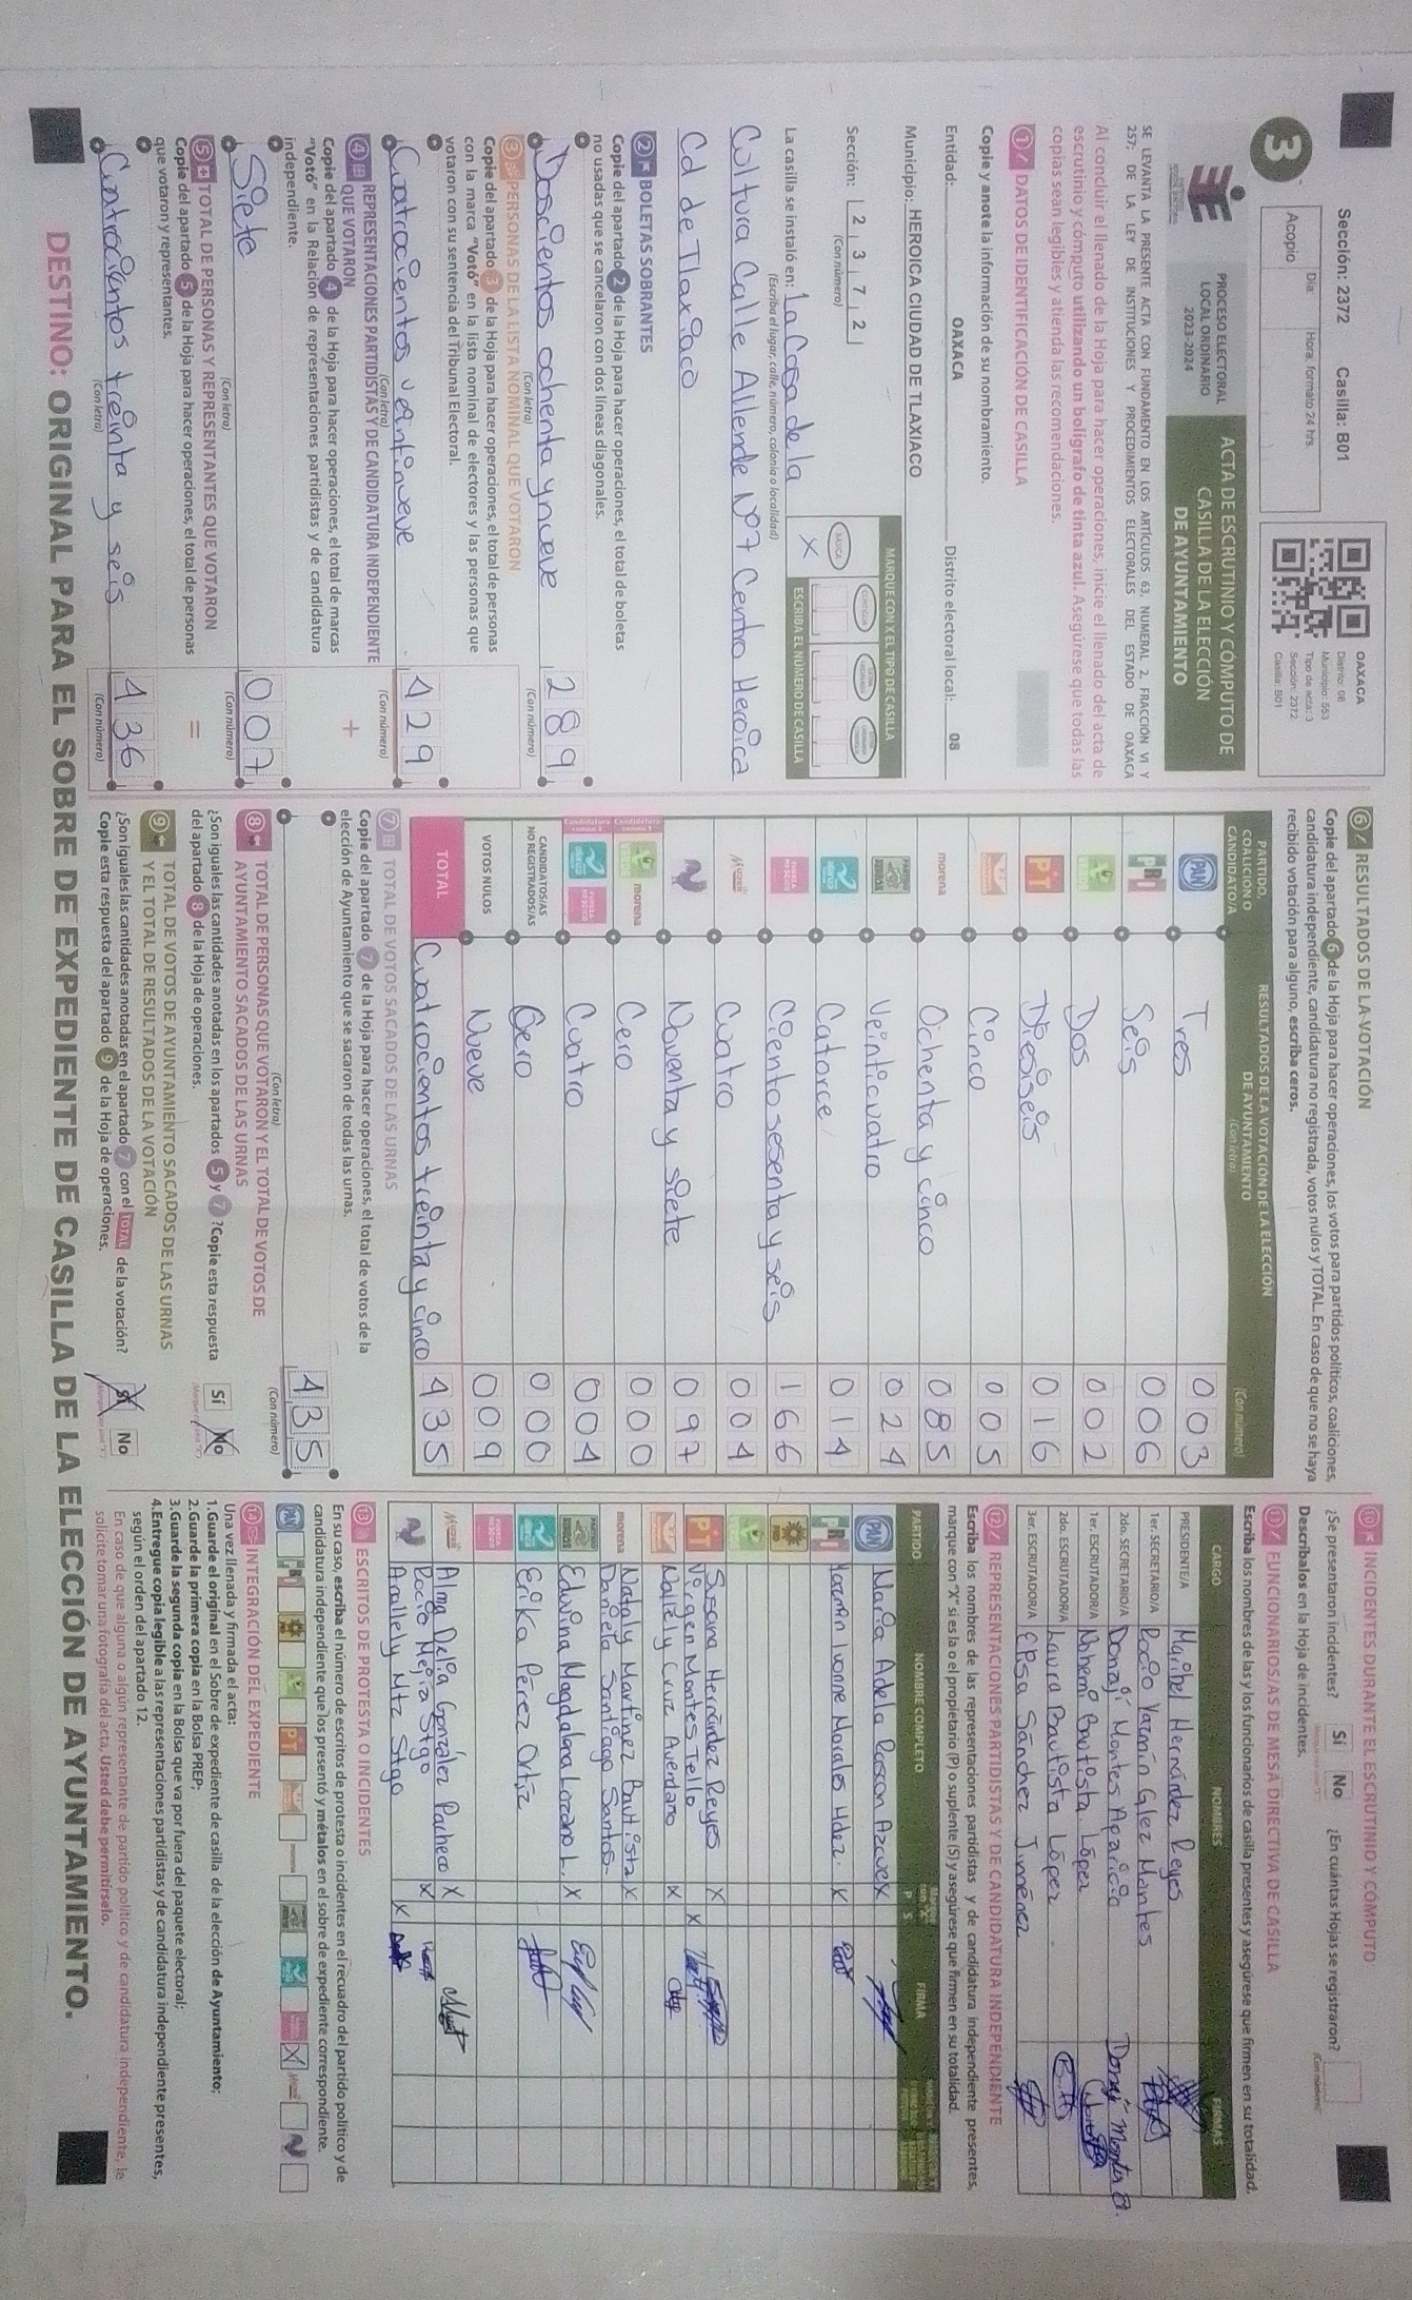 Sección: 2372 Casilla: B01
3
Acopio
Día:
Hora: formato 24 hrs.
OAXACA
Distrito: 08
Municipio: 553
Tipo de acta: 3
Sección: 2372
Casilla: B01
PROCESO ELECTORAL
LOCAL ORDINARIO
2023-2024
ACTA DE ESCRUTINIO Y CÓMPUTO DE
CASILLA DE LA ELECCIÓN
DE AYUNTAMIENTO
SE LEVANTA LA PRESENTE ACTA CON FUNDAMENTO EN LOS ARTÍCULOS 63, NUMERAL 2, FRACCIÓN VI Y
257; DE LA LEY DE INSTITUCIONES Y PROCEDIMIENTOS ELECTORALES DEL ESTADO DE OAXACA
Al concluir el llenado de la Hoja para hacer operaciones, inicie el llenado del acta de
escrutinio y cómputo utilizando un bolígrafo de tinta azul. Asegúrese que todas las
copias sean legibles y atienda las recomendaciones.
1 DATOS DE IDENTIFICACIÓN DE CASILLA
Copie y anote la información de su nombramiento.
Entidad: OAXACA Distrito electoral local: 08
Municipio: HEROICA CIUDAD DE TLAXIACO
Sección: 2 3 7 2
(Con número)
MARQUE CON X EL TIPO DE CASILLA
BÁSICA
X
ESCRIBA EL NÚMERO DE CASILLA
La casilla se instaló en: La Casa de la
(Escriba el lugar, calle, número, colonia o localidad)
Cultura Calle Allende Nº7 Centro Heroica
Cd de Tlaxiaco
2 BOLETAS SOBRANTES
Copie del apartado 2 de la Hoja para hacer operaciones, el total de boletas
no usadas que se cancelaron con dos líneas diagonales.
Doscientos ochenta y nueve 289
(Con letra) (Con número)
3 PERSONAS DE LA LISTA NOMINAL QUE VOTARON
Copie del apartado 3 de la Hoja para hacer operaciones, el total de personas
con la marca "Votó" en la lista nominal de electores y las personas que
votaron con su sentencia del Tribunal Electoral.
Cuatrocientos veintinueve 429
(Con letra) (Con número)
4 REPRESENTACIONES PARTIDISTAS Y DE CANDIDATURA INDEPENDIENTE
QUE VOTARON
+
Copie del apartado 4 de la Hoja para hacer operaciones, el total de marcas
"Votó" en la Relación de representaciones partidistas y de candidatura
independiente.
Siete 007
(Con letra) (Con número)
5 TOTAL DE PERSONAS Y REPRESENTANTES QUE VOTARON
=
Copie del apartado 5 de la Hoja para hacer operaciones, el total de personas
que votaron y representantes.
Cuatrocientos treinta y seis 436
(Con letra) (Con número)
6 RESULTADOS DE LA VOTACIÓN
Copie del apartado 6 de la Hoja para hacer operaciones, los votos para partidos políticos, coaliciones,
candidatura independiente, candidatura no registrada, votos nulos y TOTAL. En caso de que no se haya
recibido votación para alguno, escriba ceros.
PARTIDO, COALICIÓN O CANDIDATO/A
RESULTADOS DE LA VOTACIÓN DE LA ELECCIÓN
DE AYUNTAMIENTO
(Con letra) (Con número)
PAN Tres 003
PRI Seis 006
Dos 002
PT Dieciseis 016
Cinco 005
morena Ochenta y cinco 085
Veinticuatro 024
Catorce 014
Ciento sesenta y seis 166
Cuatro 004
Noventa y siete 097
morena Cero 000
Cuatro 004
CANDIDATOS/AS NO REGISTRADOS/AS Cero 000
VOTOS NULOS Nueve 009
TOTAL Cuatrocientos treinta y cinco 435
7 TOTAL DE VOTOS SACADOS DE LAS URNAS
Copie del apartado 7 de la Hoja para hacer operaciones, el total de votos de la
elección de Ayuntamiento que se sacaron de todas las urnas.
435
(Con letra) (Con número)
8 TOTAL DE PERSONAS QUE VOTARON Y EL TOTAL DE VOTOS DE
AYUNTAMIENTO SACADOS DE LAS URNAS
¿Son iguales las cantidades anotadas en los apartados 5 y 7 ? Copie esta respuesta
del apartado 8 de la Hoja de operaciones.
Sí No
9 TOTAL DE VOTOS DE AYUNTAMIENTO SACADOS DE LAS URNAS
Y EL TOTAL DE RESULTADOS DE LA VOTACIÓN
¿Son iguales las cantidades anotadas en el apartado 7 con el TOTAL de la votación?
Copie esta respuesta del apartado 9 de la Hoja de operaciones.
Sí No
10 INCIDENTES DURANTE EL ESCRUTINIO Y CÓMPUTO
¿Se presentaron incidentes? Sí No ¿En cuántas Hojas se registraron?
(Con número)
Descríbalos en la Hoja de incidentes.
11 FUNCIONARIOS/AS DE MESA DIRECTIVA DE CASILLA
Escriba los nombres de las y los funcionarios de casilla presentes y asegúrese que firmen en su totalidad.
CARGO NOMBRES FIRMAS
PRESIDENTE/A Maribel Hernández Reyes
1er. SECRETARIO/A Rocio Yazmín Glez Montes
2do. SECRETARIO/A Donají Montes Aparicio
1er. ESCRUTADOR/A Nhemi Bautista López
2do. ESCRUTADOR/A Laura Bautista López
3er. ESCRUTADOR/A Elsa Sánchez Jiménez
12 REPRESENTACIONES PARTIDISTAS Y DE CANDIDATURA INDEPENDIENTE
Escriba los nombres de las representaciones partidistas y de candidatura independiente presentes,
marque con "X" si es la o el propietario (P) o suplente (S) y asegúrese que firmen en su totalidad.
PARTIDO NOMBRE COMPLETO P S FIRMA
PAN Maria Adela X
PRI Ivonne Morales Hdez. X
PT Susana Hernández Reyes X
Virgen Montes Tello X
Nallely Cruz Avendaño X
morena Nataly Martínez Bautista X
Daniela Santiago Santos
Edwina Magdalena Lozano L. X
Erika Pérez Ortiz
Alma Delia González Pacheco X
Rocio Mejía Stgo X
Arallely Mtz Stgo X
13 ESCRITOS DE PROTESTA O INCIDENTES
En su caso, escriba el número de escritos de protesta o incidentes en el recuadro del partido político y de
candidatura independiente que los presentó y métalos en el sobre de expediente correspondiente.
PAN PT X
14 INTEGRACIÓN DEL EXPEDIENTE
Una vez llenada y firmada el acta:
1. Guarde el original en el Sobre de expediente de casilla de la elección de Ayuntamiento;
2. Guarde la primera copia en la Bolsa PREP;
3. Guarde la segunda copia en la Bolsa que va por fuera del paquete electoral;
4. Entregue copia legible a las representaciones partidistas y de candidatura independiente presentes,
según el orden del apartado 12.
En caso de que alguna o algún representante de partido político y de candidatura independiente, le
solicite tomar una fotografía del acta, Usted debe permitírselo.
DESTINO: ORIGINAL PARA EL SOBRE DE EXPEDIENTE DE CASILLA DE LA ELECCIÓN DE AYUNTAMIENTO.